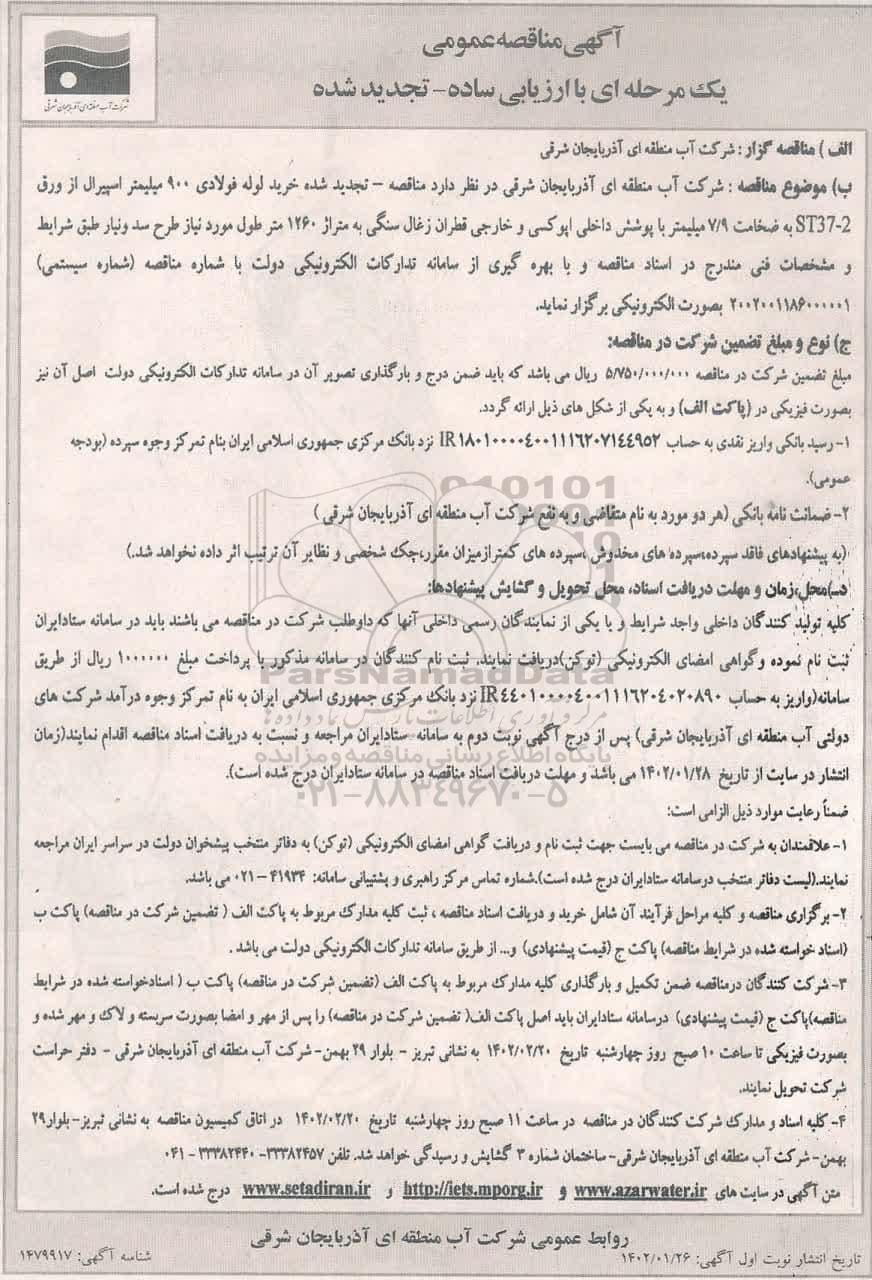 آگهی مناقصه عمومی
یک مرحله ای با ارزیابی ساده - تجدید شده
شرکت آب منطقه ای آذربایجان شرقی
الف ) مناقصه گزار : شرکت آب منطقه ای آذربایجان شرقی
ب) موضوع مناقصه : شرکت آب منطقه ای آذربایجان شرقی در نظر دارد مناقصه – تجدید شده خرید لوله فولادی ۹۰۰ میلیمتر اسپیرال از ورق
ST37-2 به ضخامت ۷/۹ میلیمتر با پوشش داخلی اپوکسی و خارجی قطران زغال سنگی به متراژ ۱۲۶۰ متر طول مورد نیاز طرح سد ونیار طبق شرایط
و مشخصات فنی مندرج در اسناد مناقصه و با بهره گیری از سامانه تدارکات الکترونیکی دولت با شماره مناقصه (شماره سیستمی)
۲۰۰۲۰۰۱۱۸۶۰۰۰۰۰۱ بصورت الکترونیکی برگزار نماید.
ج) نوع و مبلغ تضمین شرکت در مناقصه:
مبلغ تضمین شرکت در مناقصه ۵/۷۵۰/۰۰۰/۰۰۰ ریال می باشد که باید ضمن درج و بارگذاری تصویر آن در سامانه تدارکات الکترونیکی دولت اصل آن نیز
بصورت فیزیکی در (پاکت الف) و به یکی از شکل های ذیل ارائه گردد.
۱- رسید بانکی واریز نقدی به حساب IR۱۸۰۱۰۰۰۰۴۰۰۱۱۱۶۲۰۷۱۴۴۹۵۲ نزد بانک مرکزی جمهوری اسلامی ایران بنام تمرکز وجوه سپرده (بودجه
عمومی).
۲- ضمانت نامه بانکی (هر دو مورد به نام متقاضی و به نفع شرکت آب منطقه ای آذربایجان شرقی )
(به پیشنهادهای فاقد سپرده،سپرده های مخدوش ،سپرده های کمترازمیزان مقرر،چک شخصی و نظایر آن ترتیب اثر داده نخواهد شد.)
د)محل،زمان و مهلت دریافت اسناد، محل تحویل و گشایش پیشنهادها:
کلیه تولید کنندگان داخلی واجد شرایط و یا یکی از نمایندگان رسمی داخلی آنها که داوطلب شرکت در مناقصه می باشند باید در سامانه ستادایران
ثبت نام نموده وگواهی امضای الکترونیکی (توکن)دریافت نمایند. ثبت نام کنندگان در سامانه مذکور با پرداخت مبلغ ۱۰۰۰۰۰۰ ریال از طریق
سامانه(واریز به حساب IR۴۴۰۱۰۰۰۰۴۰۰۱۱۱۶۲۰۴۰۲۰۸۹۰ نزد بانک مرکزی جمهوری اسلامی ایران به نام تمرکز وجوه درآمد شرکت های
دولتی آب منطقه ای آذربایجان شرقی) پس از درج آگهی نوبت دوم به سامانه ستادایران مراجعه و نسبت به دریافت اسناد مناقصه اقدام نمایند(زمان
انتشار در سایت از تاریخ ۱۴۰۲/۰۱/۲۸ می باشد و مهلت دریافت اسناد مناقصه در سامانه ستادایران درج شده است).
ضمناً رعایت موارد ذیل الزامی است:
۱- علاقمندان به شرکت در مناقصه می بایست جهت ثبت نام و دریافت گواهی امضای الکترونیکی (توکن) به دفاتر منتخب پیشخوان دولت در سراسر ایران مراجعه
نمایند.(لیست دفاتر منتخب درسامانه ستادایران درج شده است).شماره تماس مرکز راهبری و پشتیبانی سامانه: ۴۱۹۳۴ – ۰۲۱ می باشد.
۲- برگزاری مناقصه و کلیه مراحل فرآیند آن شامل خرید و دریافت اسناد مناقصه ، ثبت کلیه مدارک مربوط به پاکت الف ( تضمین شرکت در مناقصه) پاکت ب
(اسناد خواسته شده در شرایط مناقصه) پاکت ج (قیمت پیشنهادی) و... از طریق سامانه تدارکات الکترونیکی دولت می باشد .
۳- شرکت کنندگان درمناقصه ضمن تکمیل و بارگذاری کلیه مدارک مربوط به پاکت الف (تضمین شرکت در مناقصه) پاکت ب ( اسنادخواسته شده در شرایط
مناقصه)پاکت ج (قیمت پیشنهادی) درسامانه ستادایران باید اصل پاکت الف( تضمین شرکت در مناقصه) را پس از مهر و امضا بصورت سربسته و لاک و مهر شده و
بصورت فیزیکی تا ساعت ۱۰ صبح روز چهارشنبه تاریخ ۱۴۰۲/۰۲/۲۰ به نشانی تبریز - بلوار ۲۹ بهمن- شرکت آب منطقه ای آذربایجان شرقی - دفتر حراست
شرکت تحویل نمایند.
۴- کلیه اسناد و مدارک شرکت کنندگان در مناقصه در ساعت ۱۱ صبح روز چهارشنبه تاریخ ۱۴۰۲/۰۲/۲۰ در اتاق کمیسیون مناقصه به نشانی تبریز- بلوار۲۹
بهمن- شرکت آب منطقه ای آذربایجان شرقی- ساختمان شماره ۳ گشایش و رسیدگی خواهد شد. تلفن ۳۳۳۸۲۴۵۷- ۳۳۳۸۲۴۴۰ - ۰۴۱
متن آگهی در سایت های www.azarwater.ir و http://iets.mporg.ir و www.setadiran.ir درج شده است.
روابط عمومی شرکت آب منطقه ای آذربایجان شرقی
تاریخ انتشار نوبت اول آگهی: ۱۴۰۲/۰۱/۲۶
شناسه آگهی: ۱۴۷۹۹۱۷
ParsNamadData
مرکز فرآوری اطلاعات پارس نماد داده ها
پایگاه اطلاع رسانی مناقصه و مزایده
۰۲۱-۸۸۳۴۹۶۷۰-۵